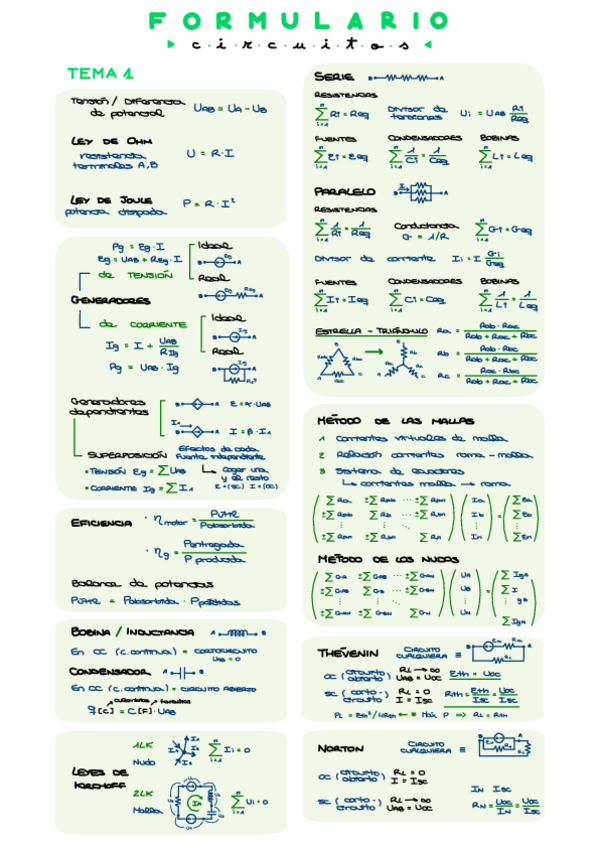 FORMULARIO
circuitos
TEMA 1
Tensión / Diferencia de potencial U_AB = U_A - U_B
LEY DE OHM
resistencia terminales A,B U = R · I
LEY DE JOULE
potencia disipada P = R · I²
Pg = Eg · I
Eg = U_AB + R_Eg · I
de TENSIÓN
Ideal
Real
GENERADORES
de CORRIENTE
Ig = I + U_AB / R_Ig
Pg = U_AB · Ig
Ideal
Real
Generadores dependientes
E = α · U_AB
I = β · I_1
SUPERPOSICIÓN
Efectos de cada fuente independiente
• TENSIÓN Eg = Σ U_AB
coger una y el resto
• CORRIENTE Ig = Σ I_1
E = (SC) I = (OC)
EFICIENCIA
• η motor = Pútil / Pabsorbida
• ηg = Pentregada / P producida
Balance de potencias
Pútil = Pabsorbida - Ppérdidas
BOBINA / INDUCTANCIA
En CC (c. continua) = CORTOCIRCUITO
U_AB = 0
CONDENSADOR
En CC (c. continua) = CIRCUITO ABIERTO
culombios faradios
q [C] = C [F] · U_AB
LEYES DE KIRCHOFF
1LK
Nudo
Σ Ii = 0
2LK
Malla
Σ Ui = 0
SERIE
RESISTENCIAS
Σ Ri = Req
Divisor de tensiones Ui = U_AB Ri / Req
FUENTES CONDENSADORES BOBINAS
Σ Ei = Eeq Σ 1/Ci = 1/Ceq Σ Li = Leq
PARALELO
RESISTENCIAS
Σ 1/Ri = 1/Req
Conductancia
G = 1/R
Σ Gi = Geq
Divisor de corriente Ii = I Gi / Geq
FUENTES CONDENSADORES BOBINAS
Σ Ii = Ieq Σ Ci = Ceq Σ 1/Li = 1/Leq
ESTRELLA - TRIÁNGULO
MÉTODO DE LAS MALLAS
1 Corrientes virtuales de malla
2 Relación corrientes rama - malla
3 Sistema de ecuaciones
↳ corrientes malla → rama
MÉTODO DE LOS NUDOS
THÉVENIN
CIRCUITO CUALQUIERA ≡
OC (circuito abierto) RL → ∞
U_AB = U_OC
Eth = U_OC
SC (corto-circuito) RL = 0
I = I_SC
Rth = Eth / I_SC = U_OC / I_SC
PL = Eth² / 4Rth ← Máx P ⇒ RL = Rth
NORTON
CIRCUITO CUALQUIERA ≡
OC (circuito abierto) RL = 0
I = I_SC
IN I_SC
SC (corto-circuito) RL → ∞
U_AB = U_OC
RN = U_OC / IN = U_OC / I_SC